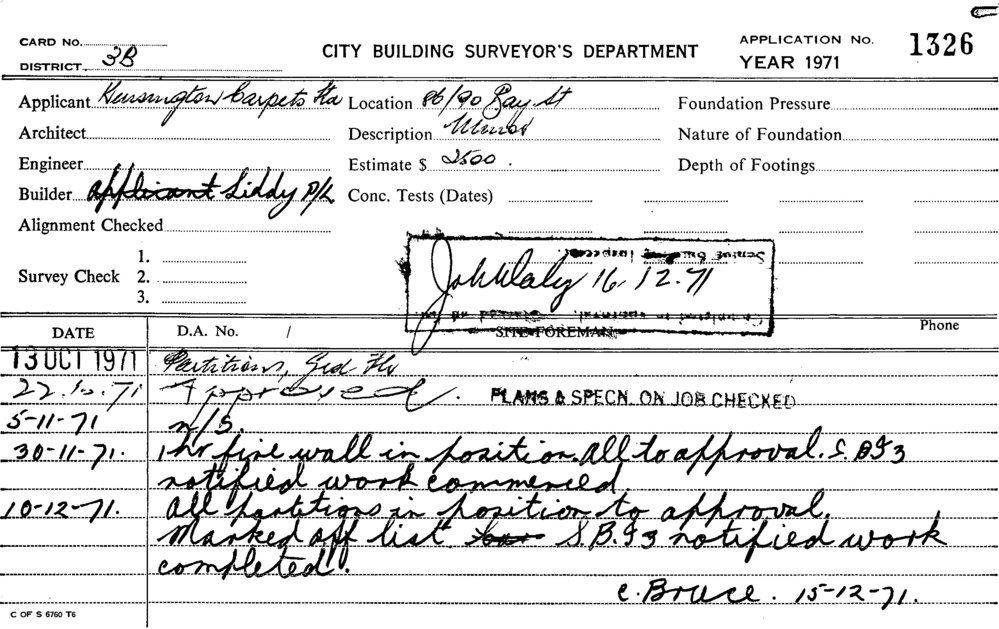 CARD No.
DISTRICT 3B
CITY BUILDING SURVEYOR'S DEPARTMENT
APPLICATION No. 1326
YEAR 1971
Applicant Kensington Carpets
Location 86/90 Bay St
Foundation Pressure
Architect
Description Minor
Nature of Foundation
Engineer
Estimate $ 2500.
Depth of Footings
Builder applicant Liddy P/L
Conc. Tests (Dates)
Alignment Checked
Survey Check
1.
2.
3.
Senior Building Inspector
John Daly 16.12.71
SITE FOREMAN
Phone
DATE
D.A. No. /
13 OCT 1971 Partitions, Grd Flr
22.10.71 Approved. PLANS & SPECN. ON JOB CHECKED
5-11-71 n/s.
30-11-71. 1 hr fire wall in position. All to approval. S.B.I3
notified work commenced
10-12-71. All partitions in position to approval.
Marked off list S.B.I3 notified work
completed.
C. Bruce. 15-12-71.
C OF S 6760 T6